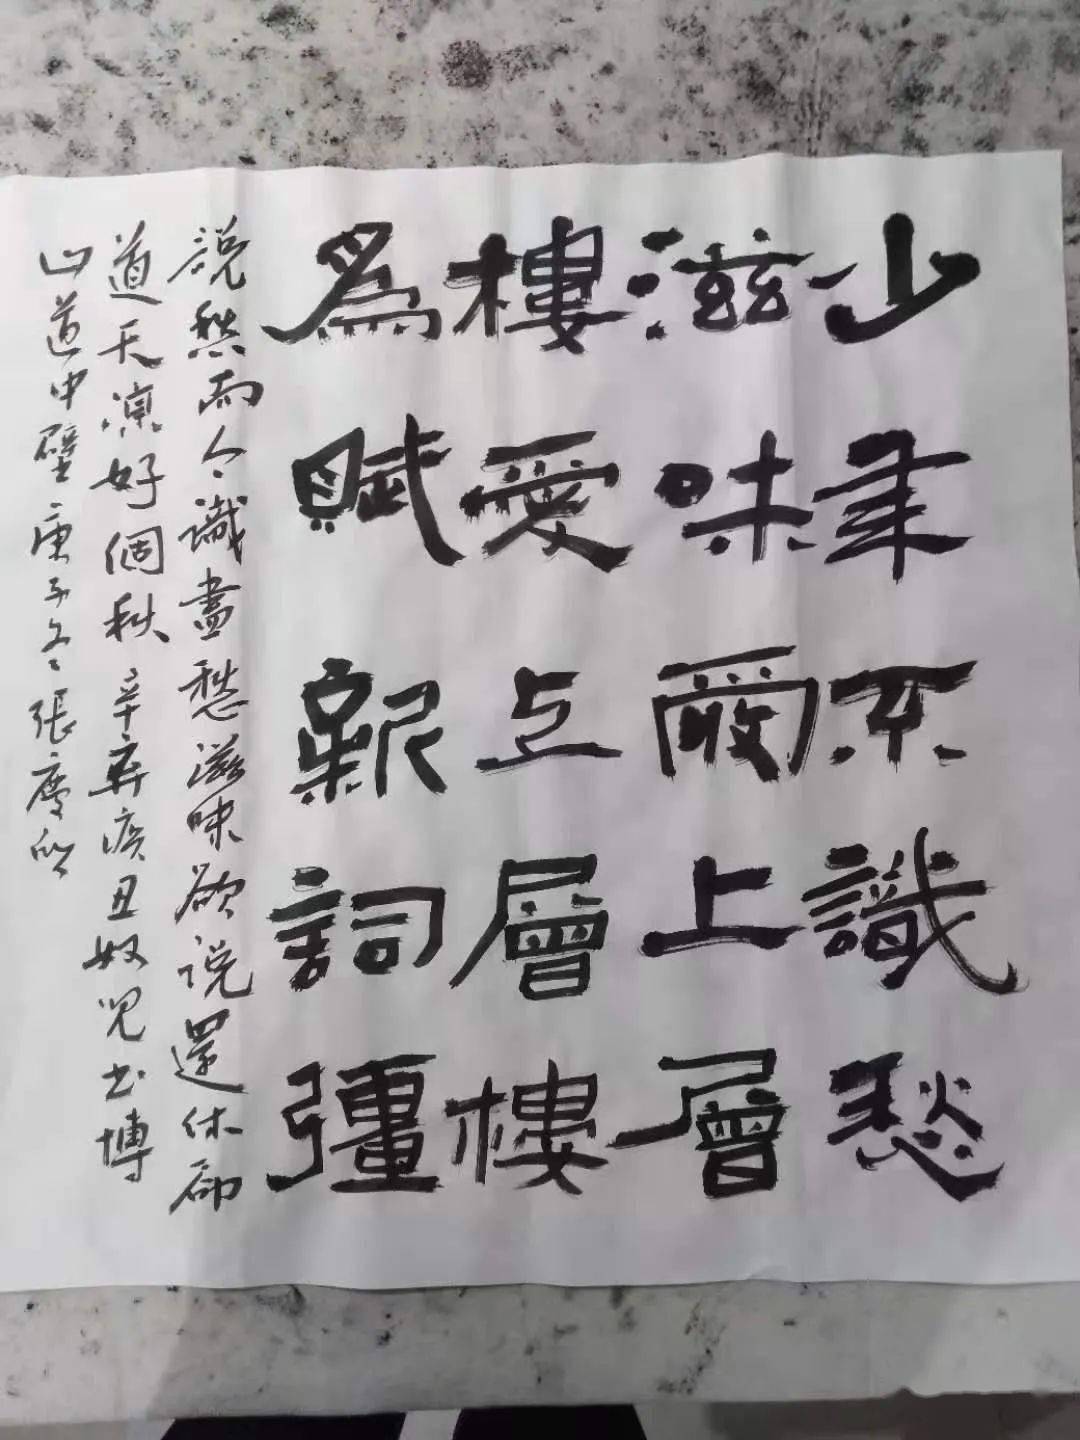 少年不識愁
滋味愛上層
樓愛上層樓
爲賦新詞彊
說愁而今識盡愁滋味欲说還休卻
道天凉好個秋辛弃疾丑奴兒书博
山道中壁庚子冬張慶